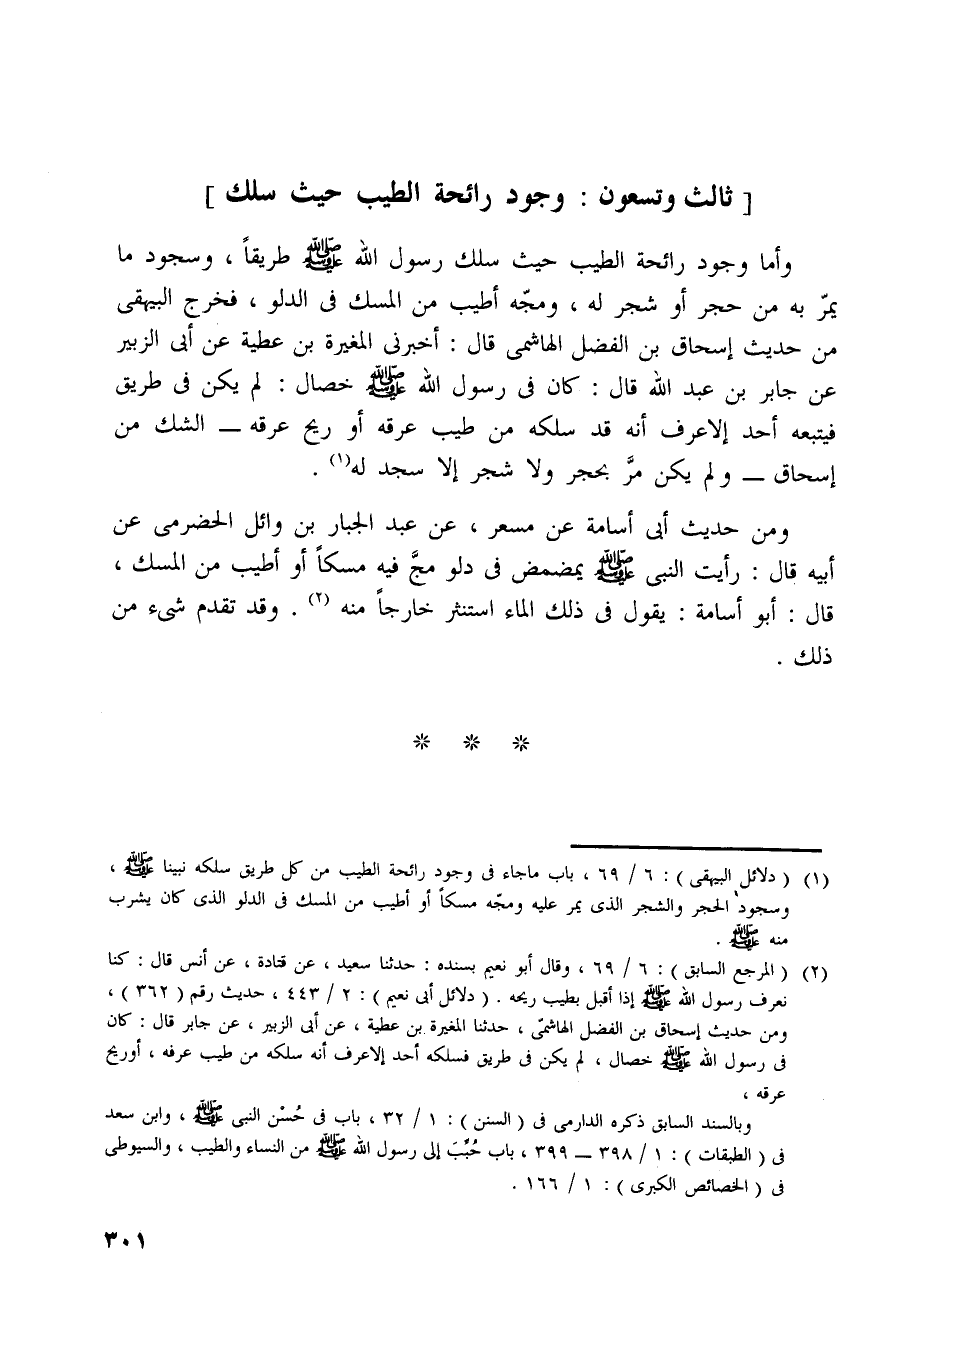 [ ثالث وتسعون : وجود رائحة الطيب حيث سلك ]
وأما وجود رائحة الطيب حيث سلك رسول الله ﷺ طريقاً ، وسجود ما
يمرّ به من حجر أو شجر له ، ومجّه أطيب من المسك فى الدلو ، فخرج البيهقى
من حديث إسحاق بن الفضل الهاشمى قال : أخبرنى المغيرة بن عطية عن أبى الزبير
عن جابر بن عبد الله قال : كان فى رسول الله ﷺ خصال : لم يكن فى طريق
فيتبعه أحد إلاعرف أنه قد سلكه من طيب عرقه أو ريح عرقه ــ الشك من
إسحاق ــ ولم يكن مرَّ بحجر ولا شجر إلا سجد له(١) .
ومن حديث أبى أسامة عن مسعر ، عن عبد الجبار بن وائل الحضرمى عن
أبيه قال : رأيت النبى ﷺ يمضمض فى دلو مجَّ فيه مسكاً أو أطيب من المسك ،
قال : أبو أسامة : يقول فى ذلك الماء استنثر خارجاً منه (٢) . وقد تقدم شىء من
ذلك .
* * *
(١) ( دلائل البيهقى ) : ٦ / ٦٩ ، باب ماجاء فى وجود رائحة الطيب من كل طريق سلكه نبينا ﷺ ،
وسجود الحجر والشجر الذى يمر عليه ومجّه مسكاً أو أطيب من المسك فى الدلو الذى كان يشرب
منه ﷺ .
(٢) ( المرجع السابق ) : ٦ / ٦٩ ، وقال أبو نعيم بسنده : حدثنا سعيد ، عن قتادة ، عن أنس قال : كنا
نعرف رسول الله ﷺ إذا أقبل بطيب ريحه . ( دلائل أبى نعيم ) : ٢ / ٤٤٣ ، حديث رقم ( ٣٦٢ ) ،
ومن حديث إسحاق بن الفضل الهاشمىّ ، حدثنا المغيرة بن عطية ، عن أبى الزبير ، عن جابر قال : كان
فى رسول الله ﷺ خصال ، لم يكن فى طريق فسلكه أحد إلاعرف أنه سلكه من طيب عرفه ، أوريح
عرقه ،
وبالسند السابق ذكره الدارمى فى ( السنن ) : ١ / ٣٢ ، باب فى حُسْن النبى ﷺ ، وابن سعد
فى ( الطبقات ) : ١ / ٣٩٨ ــ ٣٩٩ ، باب حُبِّبَ إلى رسول الله ﷺ من النساء والطيب ، والسيوطى
فى ( الخصائص الكبرى ) : ١ / ١٦٦ .
٣٠١